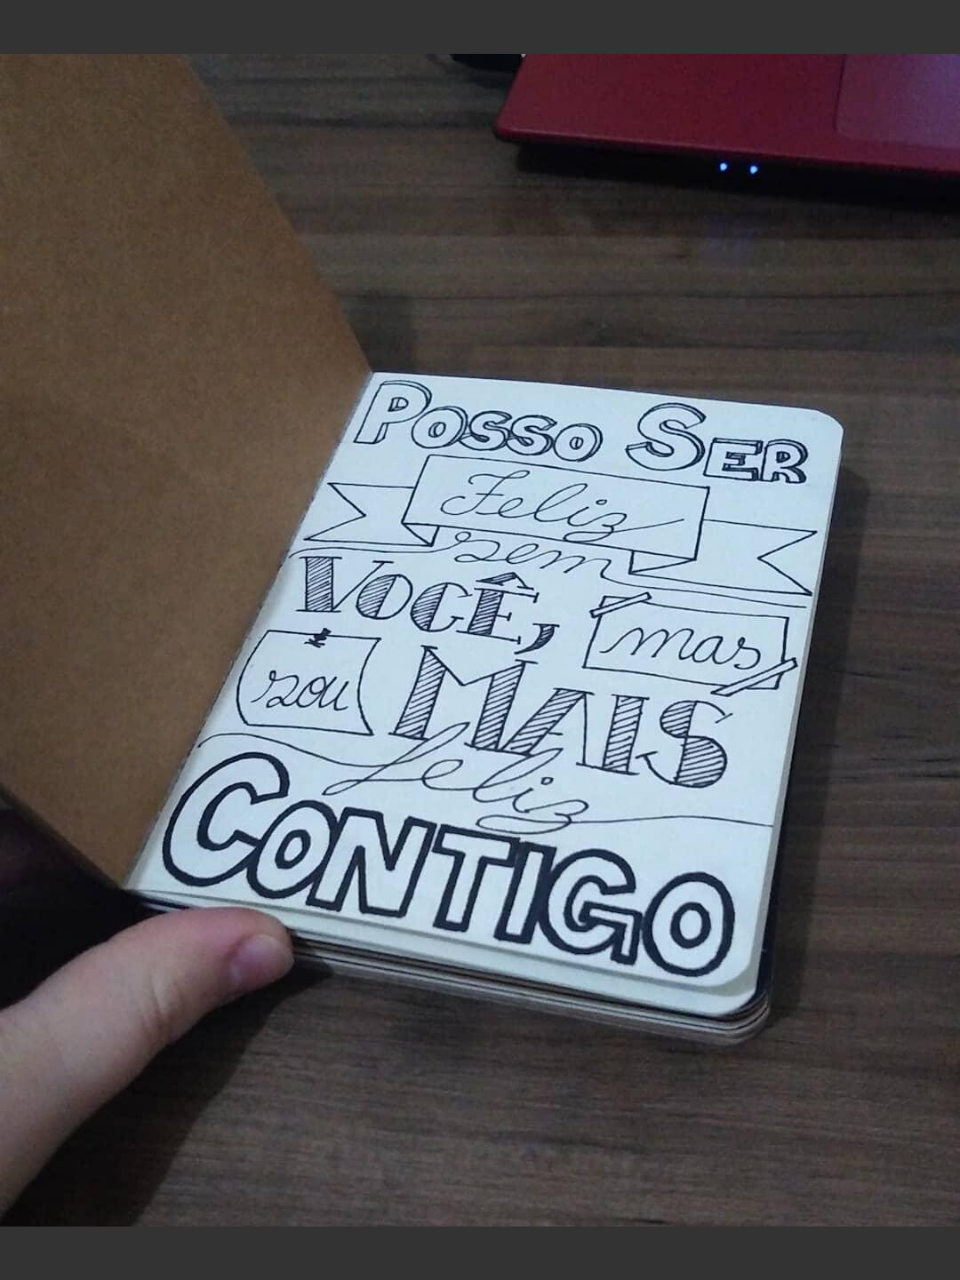 POSSO SER
Feliz
sem
VOCÊ, mas
sou MAIS
feliz
CONTIGO